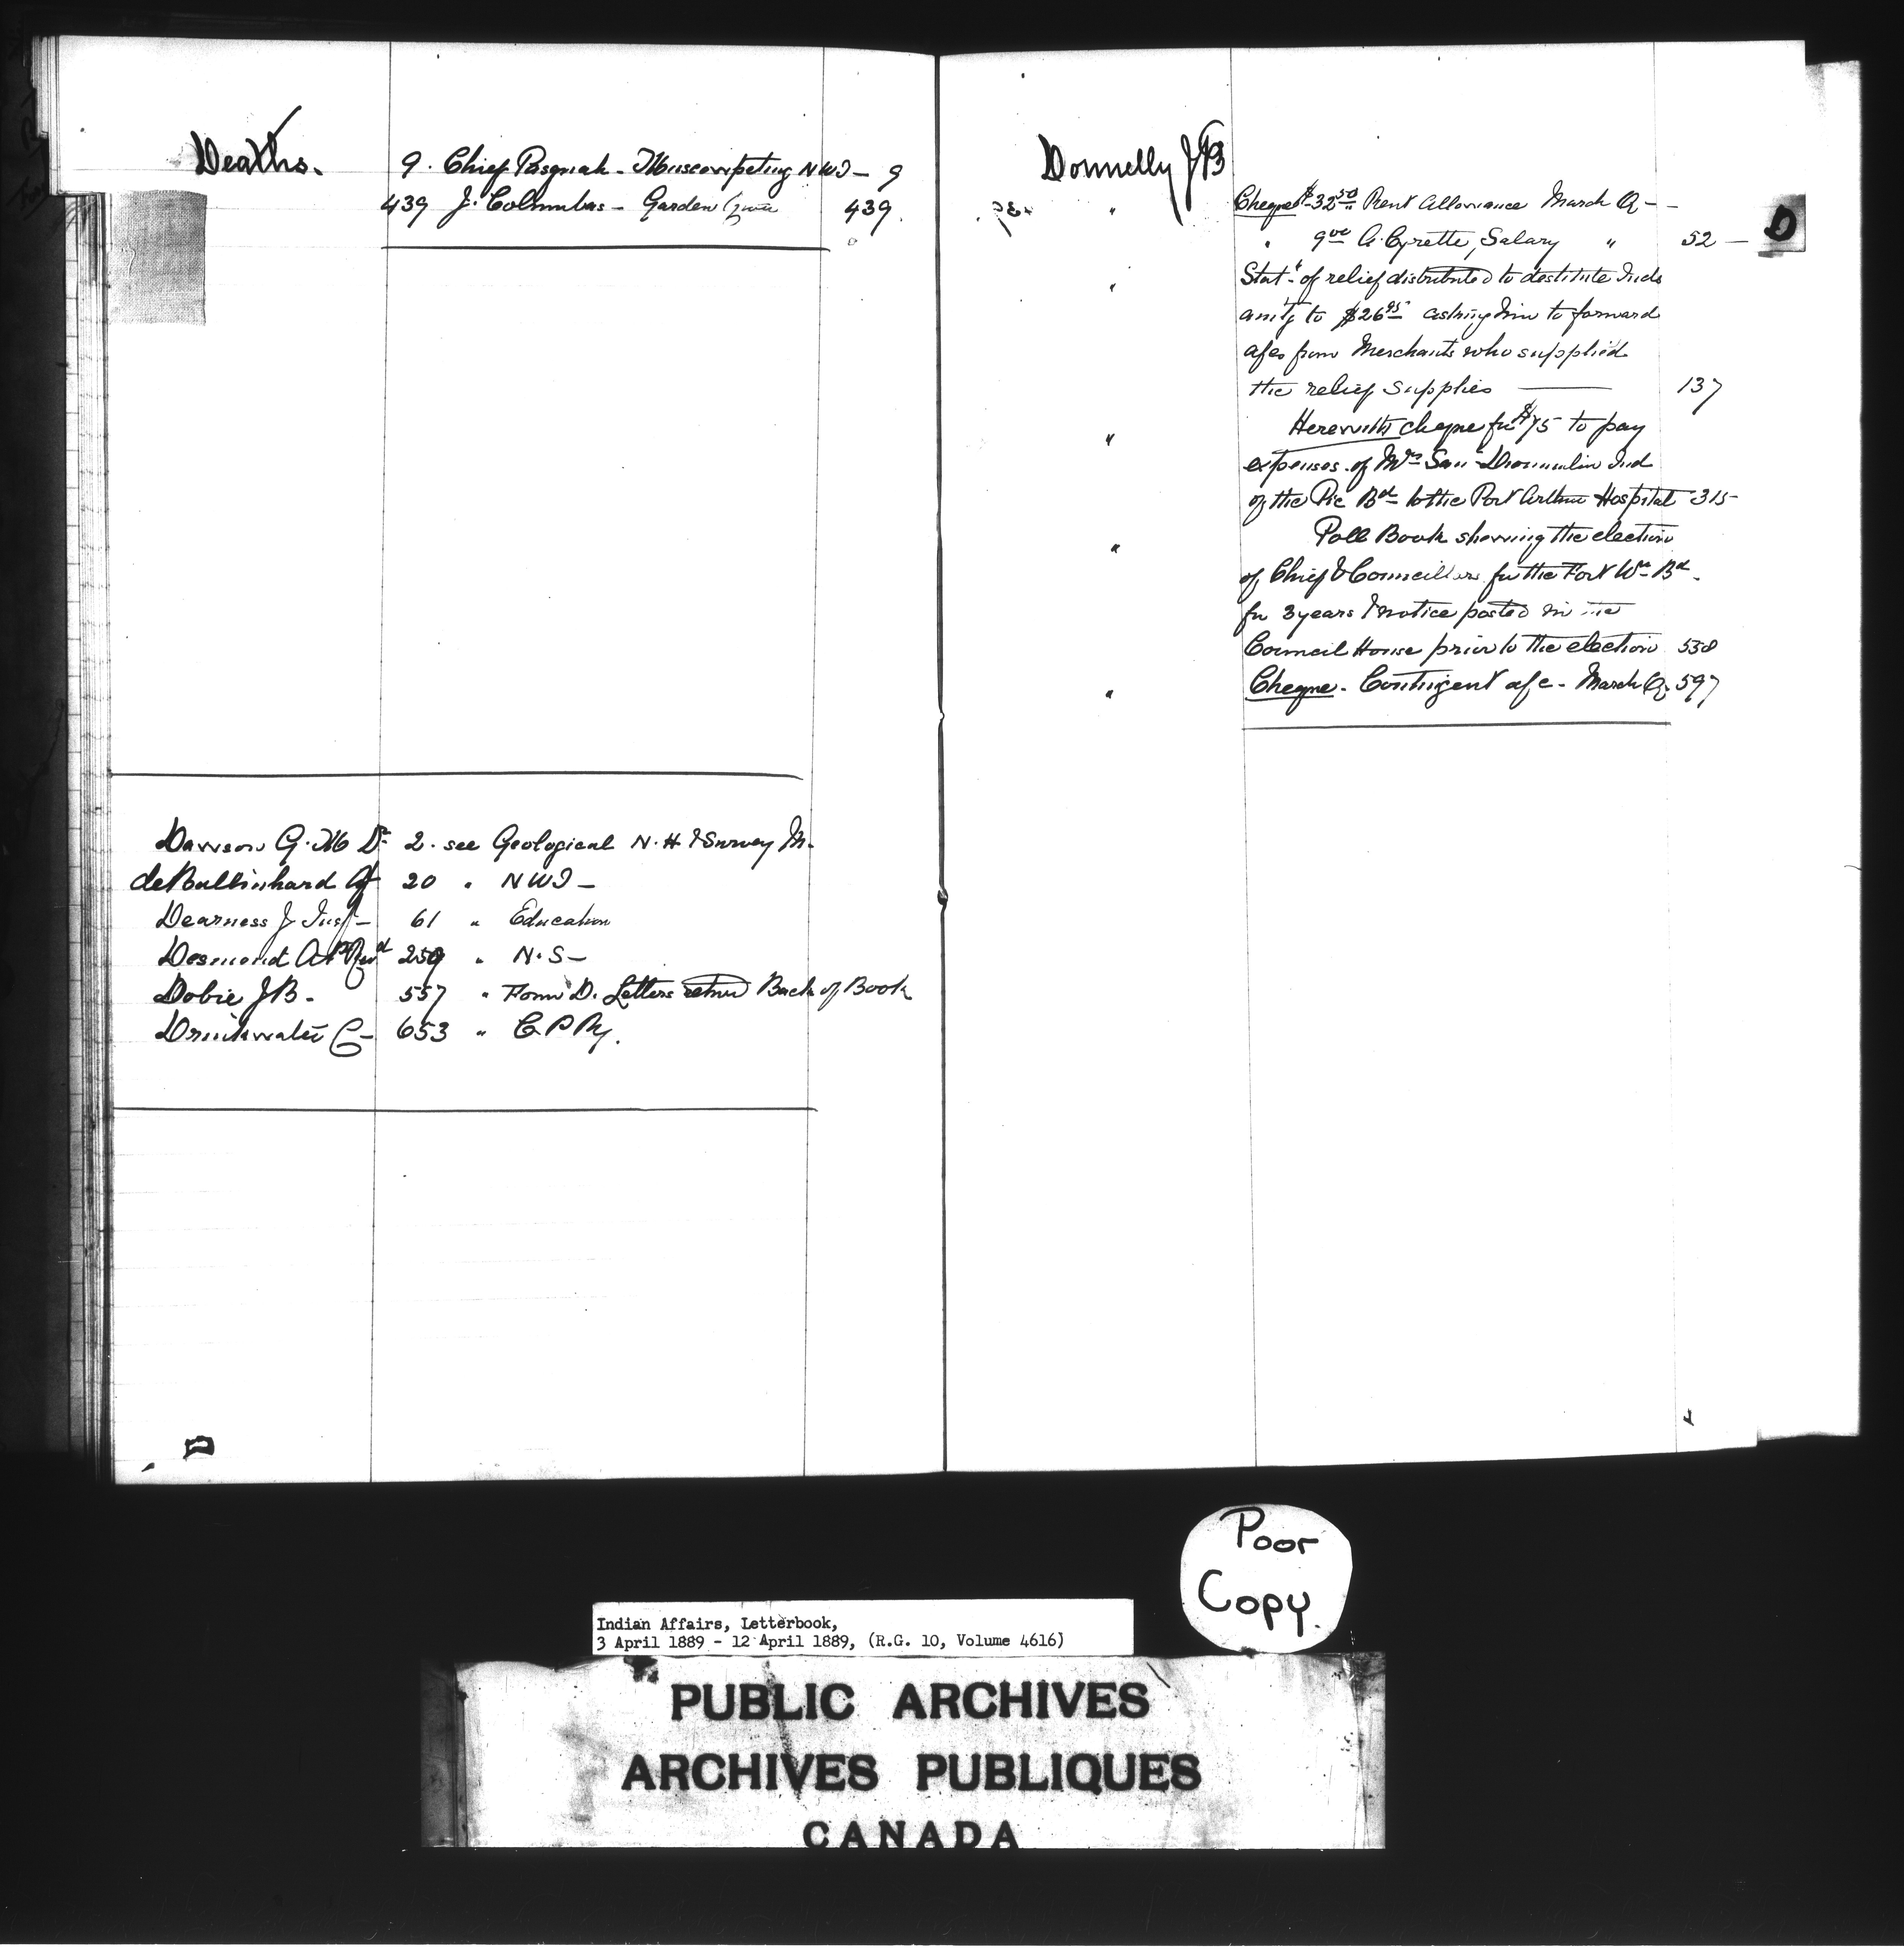 Deaths.
9. Chief Pasquah - Muscowpetung NWT - 9
439 J. Columbus - Garden 439.
Dawson G. M Dr 2. see Geological N. H & Survey M.
20 " NWT -
Dearness J Insp - 61 " Education
Desmond 259 " N. S -
Dobie J B - 557 " Form D. Letters Back of Book
Drinkwater C - 653 " C P Ry.
Donnelly J P
" Cheque $32 50 Rent Allowance March Q -
" 9 00 Salary " 52 -
" Stat't of relief distributed to destitute Inds
am'tg to $26 95 asking him to forward
a/cs from Merchants who supplied
the relief supplies 137
" Herewith cheque for $75 to pay
expenses of Mrs Ind
of the Pic Bd to the Port Arthur Hospital 315
" Poll Book showing the election
of Chief & Councillors for the Fort Wm Bd.
for 3 years & notice posted in the
Council House prior to the election 538
" Cheque - Contingent a/c - March Q. 597
D
Poor
Copy.
Indian Affairs, Letterbook,
3 April 1889 - 12 April 1889, (R.G. 10, Volume 4616)
PUBLIC ARCHIVES
ARCHIVES PUBLIQUES
CANADA